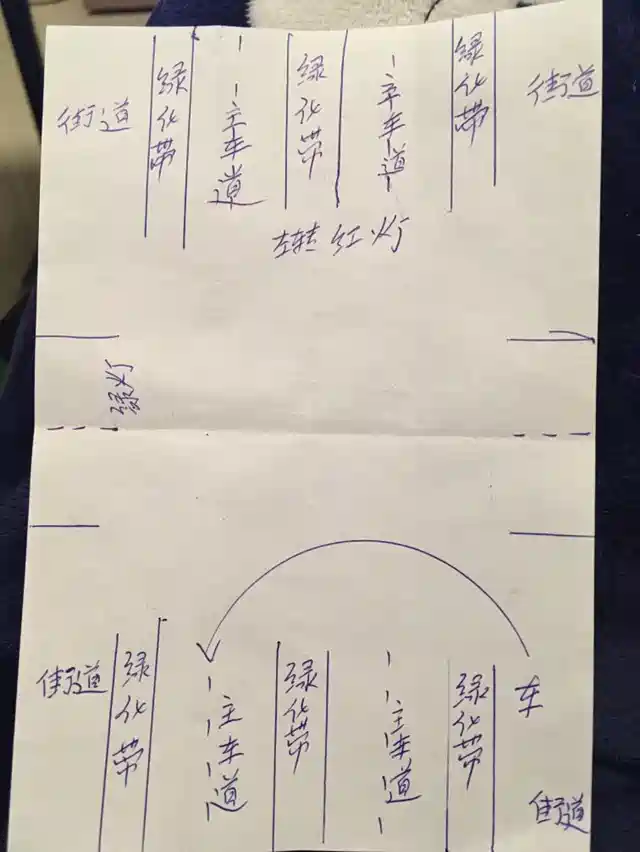 街道
绿化带
主车道
绿化带
主车道
绿化带
街道
左转红灯
绿灯
街道
绿化带
主车道
绿化带
主车道
绿化带
车
街道